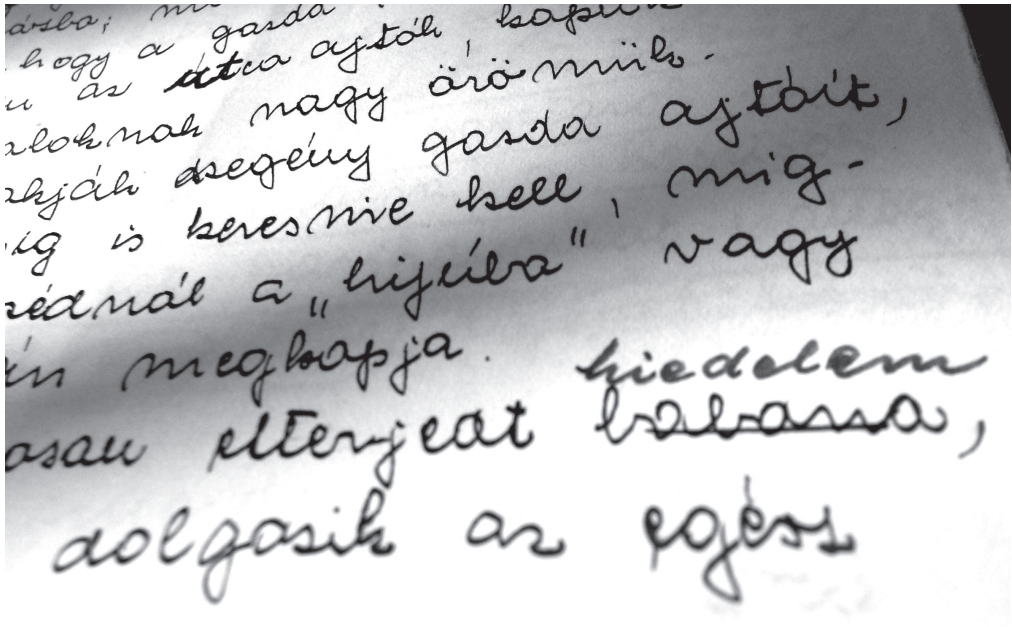 hogy a gazda
az utca ajtók, kapuk
nagy örömük.
szegény gazda ajtóit,
is keresnie kell, míg-
a „hijúba” vagy
megkapja.
hiedelem
elterjedt babona,
dolgozik az egész